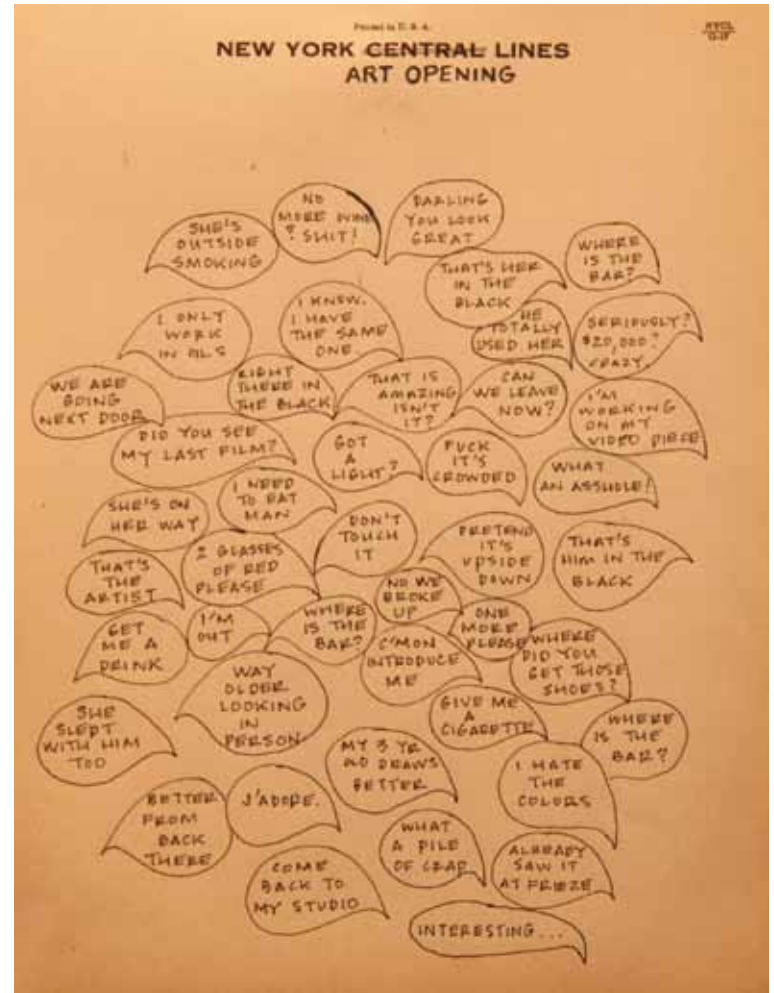 Printed in U. S. A.
NEW YORK CENTRAL LINES
ART OPENING
NO
MORE WINE
? SHIT!
DARLING
YOU LOOK
GREAT
SHE'S
OUTSIDE
SMOKING
THAT'S HER
IN THE
BLACK
WHERE
IS THE
BAR?
I ONLY
WORK
IN OILS
I KNOW.
I HAVE
THE SAME
ONE.
HE
TOTALLY
USED HER
SERIOUSLY?
$20,000?
CRAZY.
WE ARE
GOING
NEXT DOOR
RIGHT
THERE IN
THE BLACK
THAT IS
AMAZING
ISN'T
IT?
CAN
WE LEAVE
NOW?
I'M
WORKING
ON MY
VIDEO PIECE
DID YOU SEE
MY LAST FILM?
GOT
A
LIGHT?
FUCK
IT'S
CROWDED
WHAT
AN ASSHOLE!
SHE'S ON
HER WAY
I NEED
TO EAT
MAN
DON'T
TOUCH
IT
PRETEND
IT'S
UPSIDE
DOWN
THAT'S
HIM IN THE
BLACK
THAT'S
THE
ARTIST
2 GLASSES
OF RED
PLEASE
NO WE
BROKE
UP
GET
ME A
DRINK
I'M
OUT
WHERE
IS THE
BAR?
C'MON
INTRODUCE
ME
ONE
MORE
PLEASE
WHERE
DID YOU
GET THOSE
SHOES?
SHE
SLEPT
WITH HIM
TOO
WAY
OLDER
LOOKING
IN
PERSON
GIVE ME
A
CIGARETTE
WHERE
IS THE
BAR?
MY 3 YR
OLD DRAWS
BETTER
I HATE
THE
COLORS
BETTER
FROM
BACK
THERE
J'ADORE.
WHAT
A PILE
OF CRAP
ALREADY
SAW IT
AT FRIEZE
COME
BACK TO
MY STUDIO
INTERESTING...